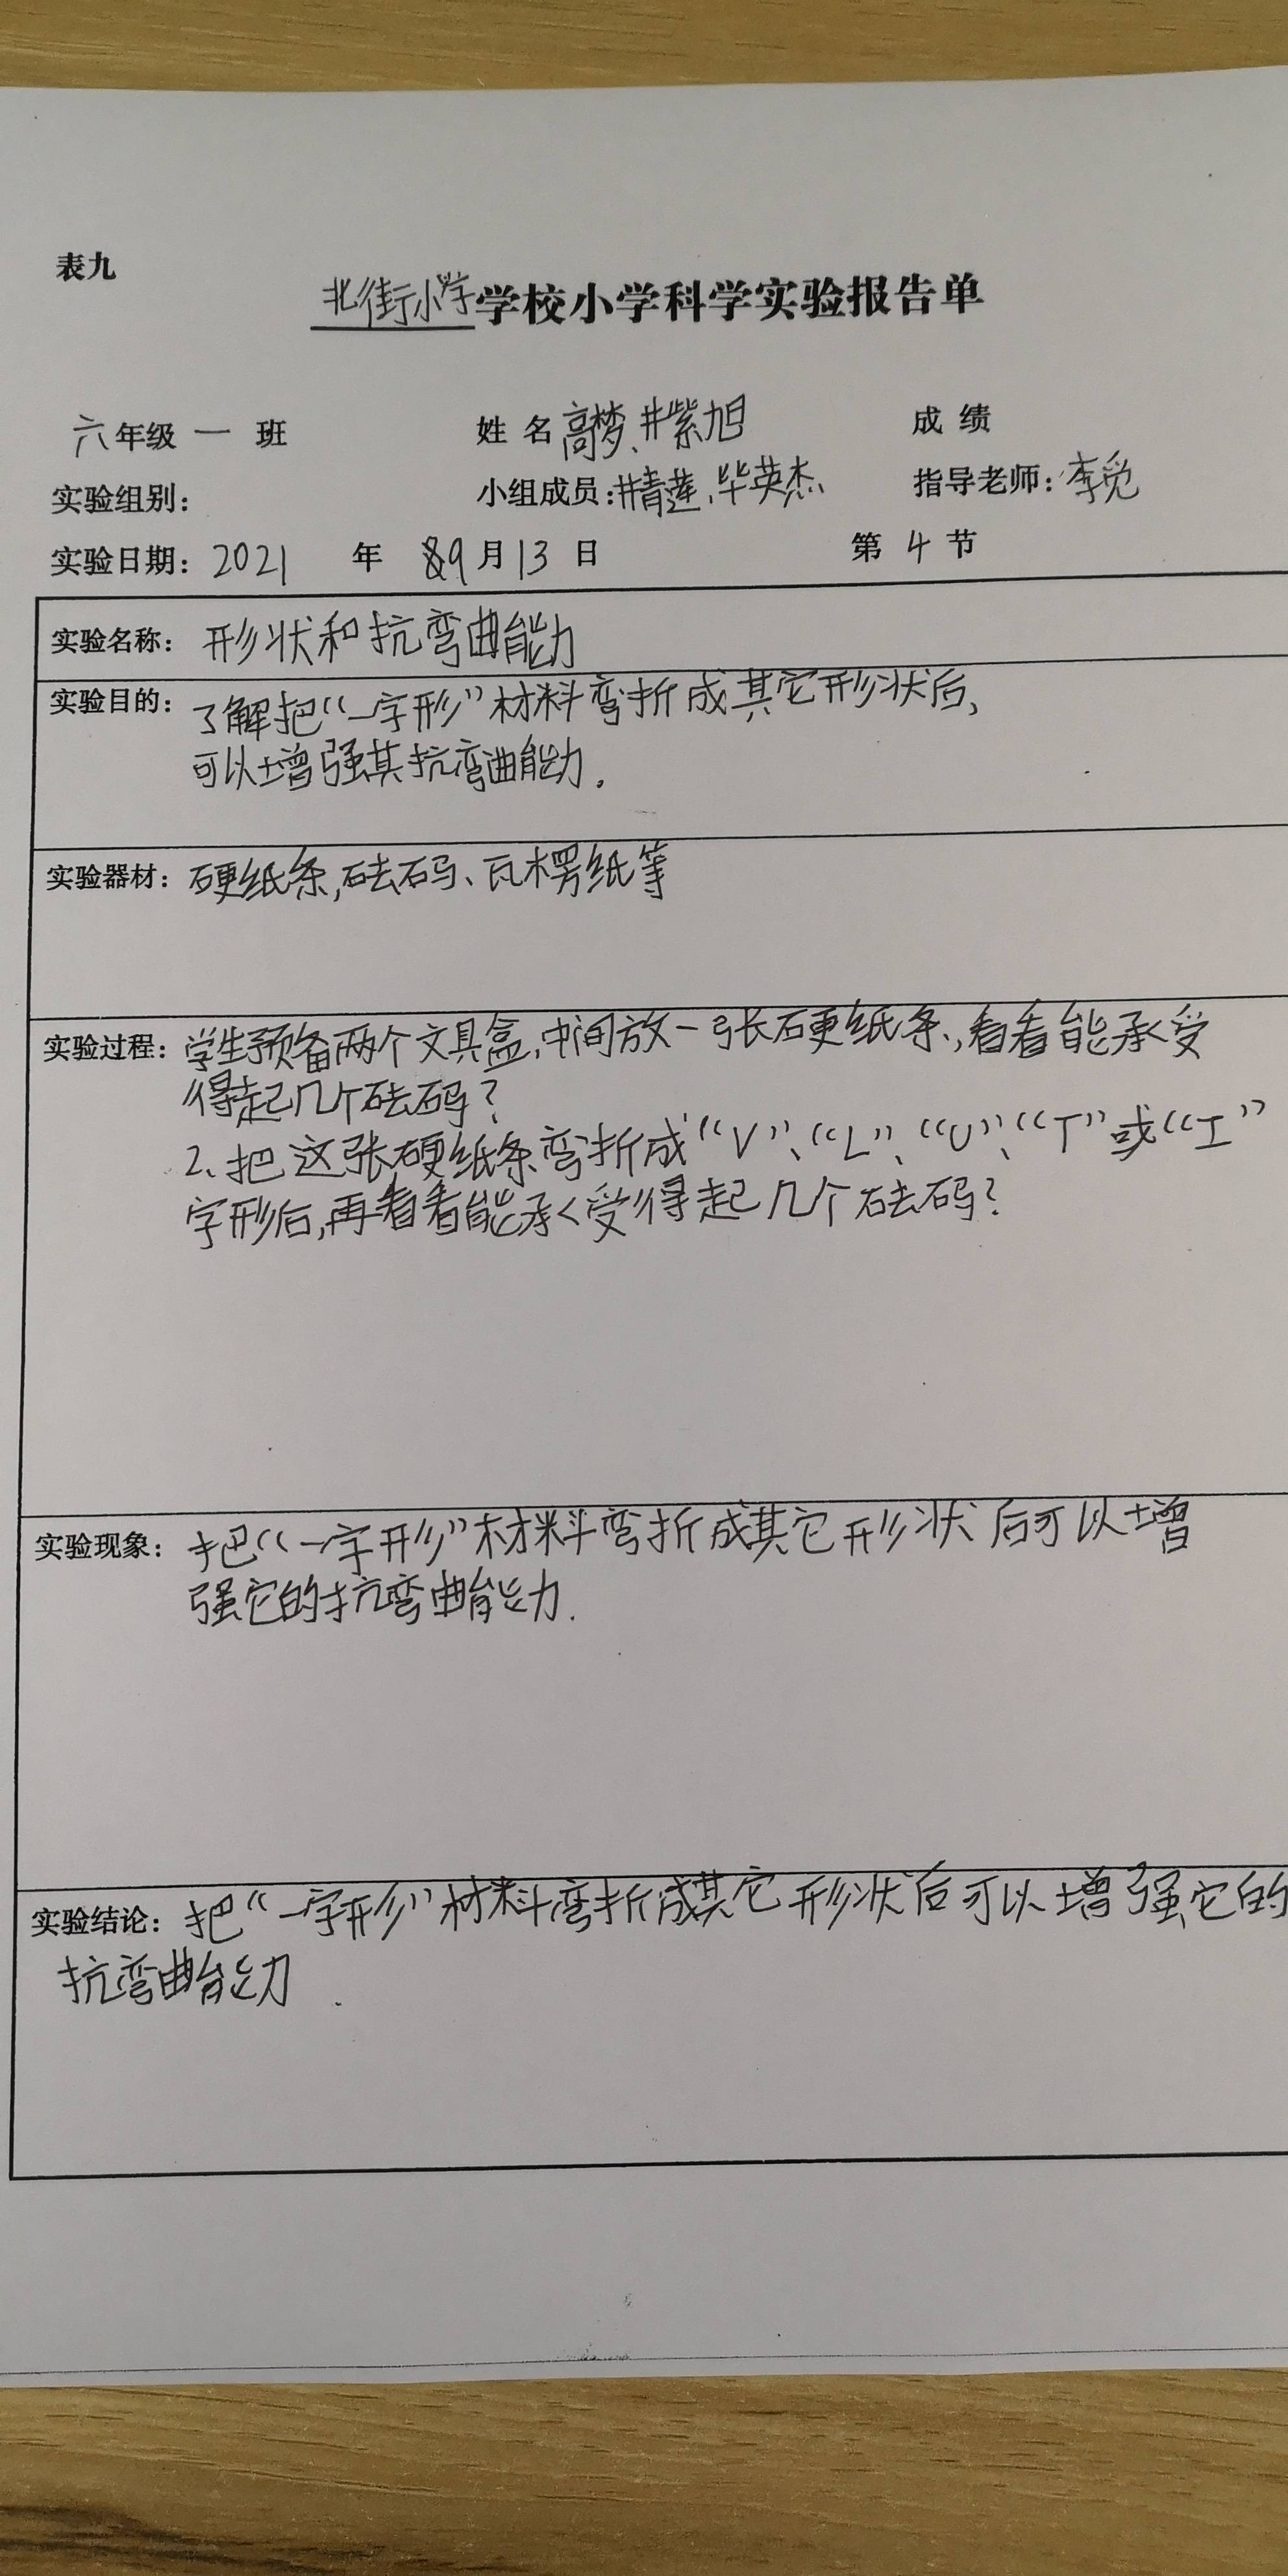 表九
北街小学学校小学科学实验报告单
六年级 一 班 姓 名 高梦、井紫旭 成 绩
实验组别： 小组成员：井青莲、毕英杰、 指导老师：李觅
实验日期：2021 年 9月13 日 第 4 节
实验名称：形状和抗弯曲能力
实验目的：了解把“一字形”材料弯折成其它形状后，
可以增强其抗弯曲能力.
实验器材：硬纸条,砝码、瓦楞纸等
实验过程：学生预备两个文具盒,中间放一张硬纸条、,看看能承受
得起几个砝码？
2、把这张硬纸条弯折成“V”、“L”、“U”、“T”或“工”
字形后,再看看能承受得起几个砝码？
实验现象：把“一字形”材料弯折成其它形状后可以增
强它的抗弯曲能力.
实验结论：把“一字形”材料弯折成其它形状后可以增强它的
抗弯曲能力.